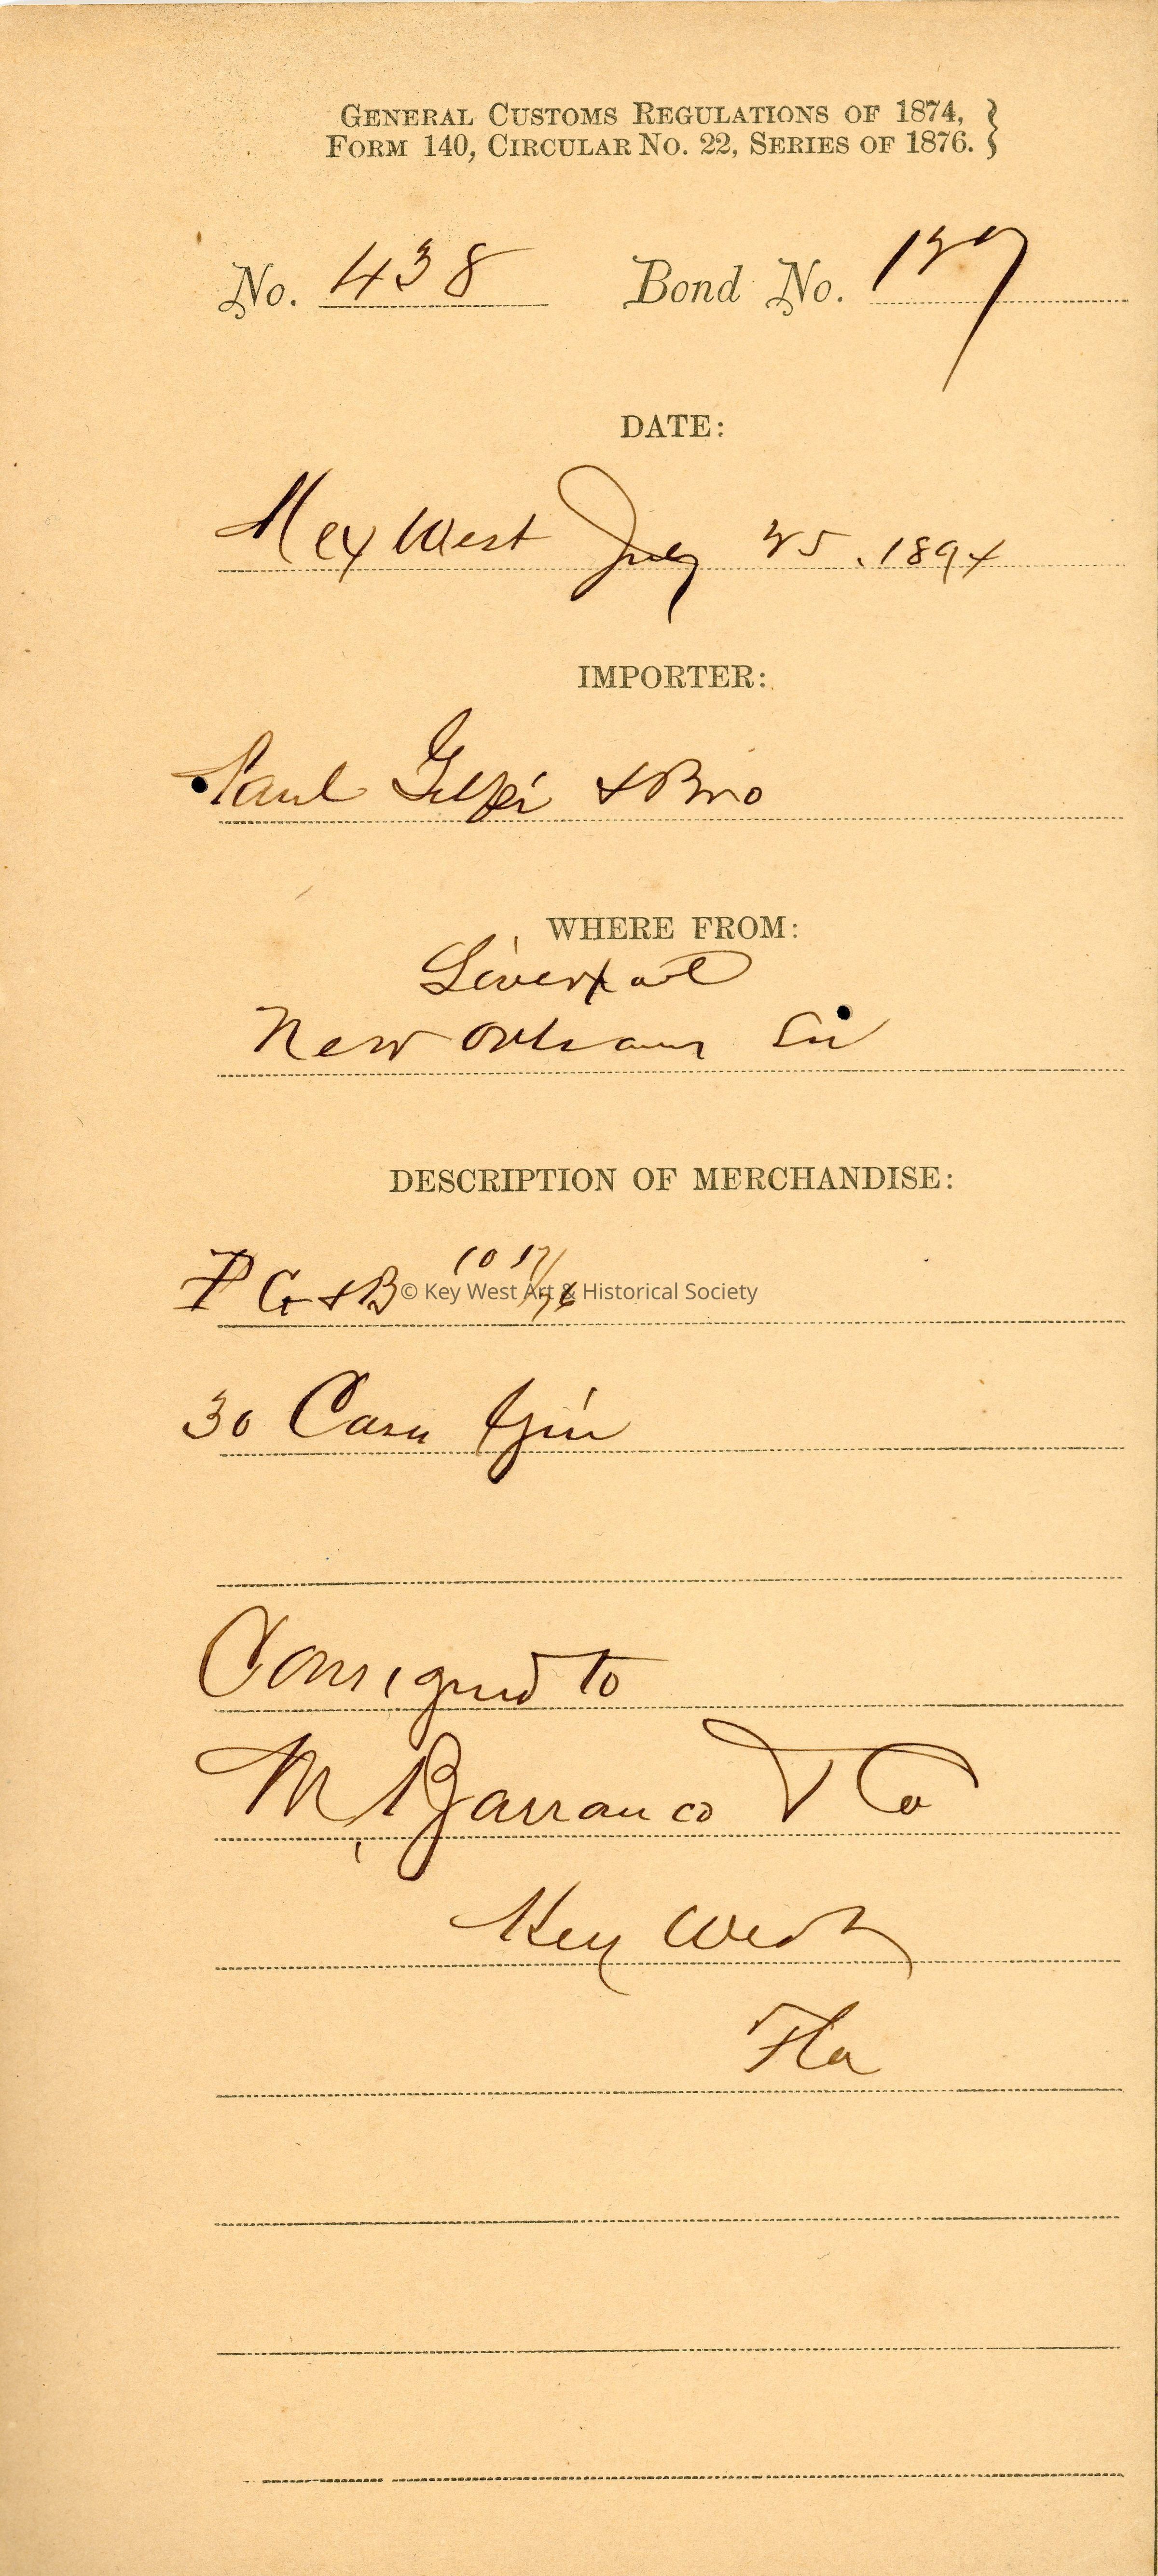 GENERAL CUSTOMS REGULATIONS OF 1874,
FORM 140, CIRCULAR NO. 22, SERIES OF 1876. }
No. 438 Bond No. 127
DATE:
Key West July 25, 1894
IMPORTER:
Paul Gelpi & Bro
WHERE FROM:
Liverpool
New Orleans
DESCRIPTION OF MERCHANDISE:
P G & B
© Key West Art & Historical Society
30 Cases Gin
Consigned to
M. Barranco & Co
Key West
Fla